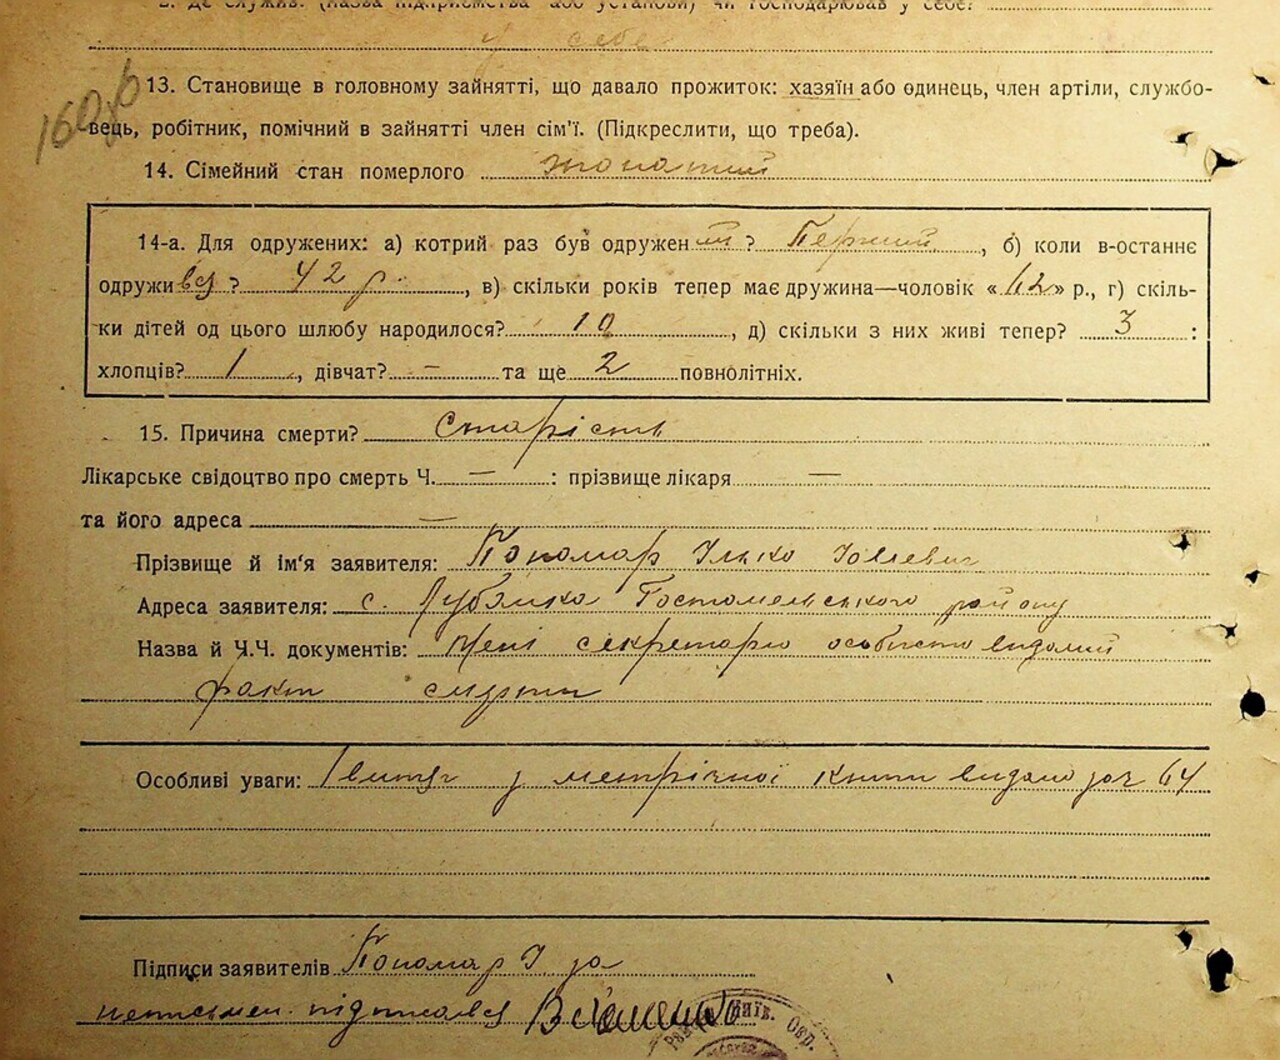 2. Де служив. (назва підприємства або установи) чи господарював у себе?
у себе
160зв
13. Становище в головному зайнятті, що давало прожиток: хазяїн або одинець, член артілі, службо-
вець, робітник, помічний в зайнятті член сім'ї. (Підкреслити, що треба).
14. Сімейний стан померлого жонатий
14-а. Для одружених: а) котрий раз був одружений? Перший, б) коли в-останнє
одруживсь? 42 р., в) скільки років тепер має дружина—чоловік «62» р., г) скіль-
ки дітей од цього шлюбу народилося? 10, д) скільки з них живі тепер? 3 :
хлопців? 1, дівчат? — та ще 2 повнолітніх.
15. Причина смерти? Старість
Лікарське свідоцтво про смерть Ч. — : прізвище лікаря —
та його адреса —
Прізвище й ім'я заявителя: Пономар Ілько
Адреса заявителя: с. Лубянка Гостомельського району
Назва й Ч.Ч. документів: Мені секретарю особисто видомий
факт смерти
Особливі уваги: витяг з метрічної книги видано за ч 64
Підписи заявителів Пономар І за
неписьмен. підписався
Київ. Окр.